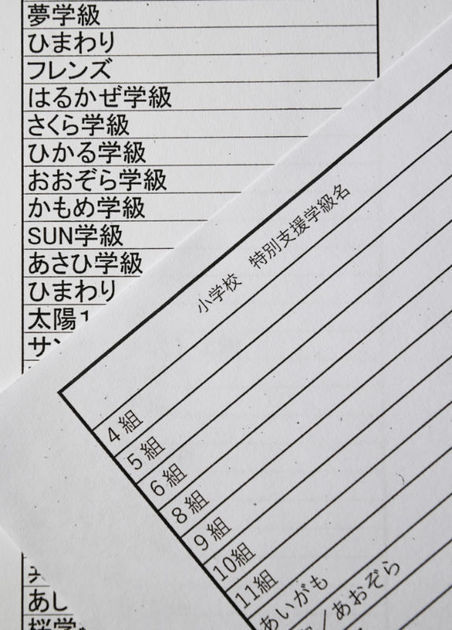 夢学級
ひまわり
フレンズ
はるかぜ学級
さくら学級
ひかる学級
おおぞら学級
かもめ学級
SUN学級
あさひ学級
ひまわり
太陽1
サン
あし
桜学
小学校　特別支援学級名
4組
5組
6組
8組
9組
10組
11組
あいがも
／あおぞら